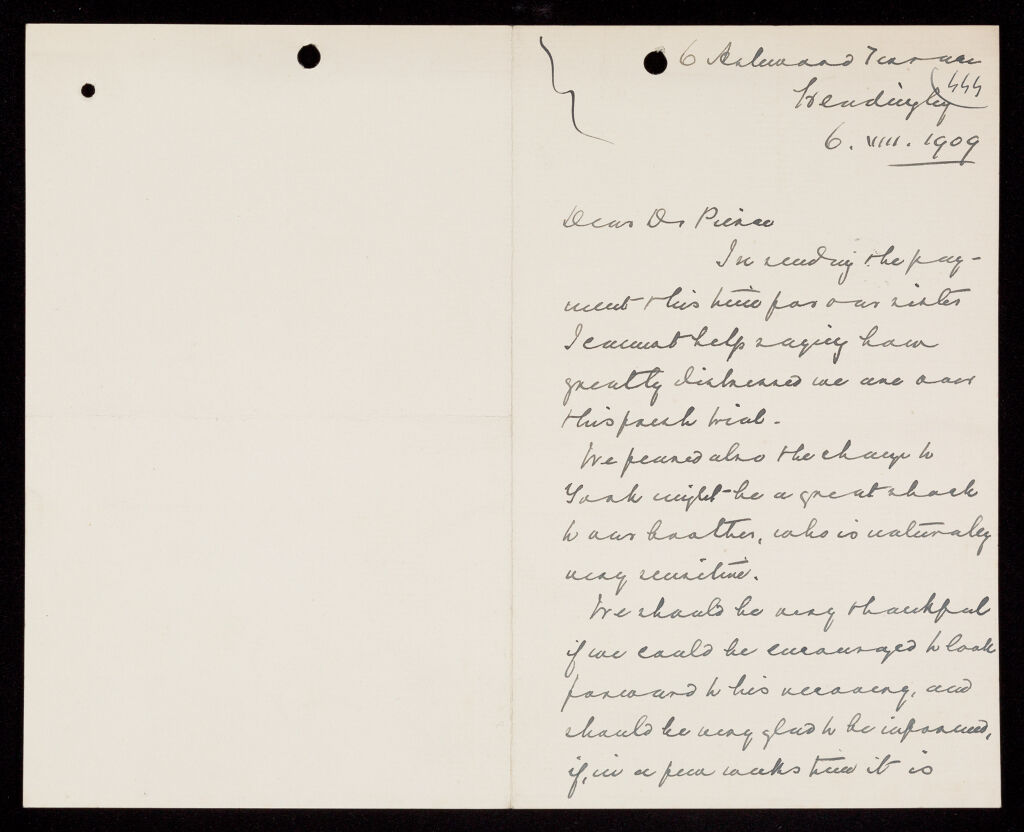 6 Ashwood Terrace
Headingley
444
6. VIII. 1909
Dear Dr Pierce
In sending the pay-
ment this time for our sister
I cannot help saying how
greatly distressed we are over
this fresh trial.
We feared also the change to
York might be a great shock
to our brother, who is naturally
very sensitive.
We should be very thankful
if we could be encouraged to look
forward to his recovery, and
should be very glad to be informed,
if, in a few weeks time it is